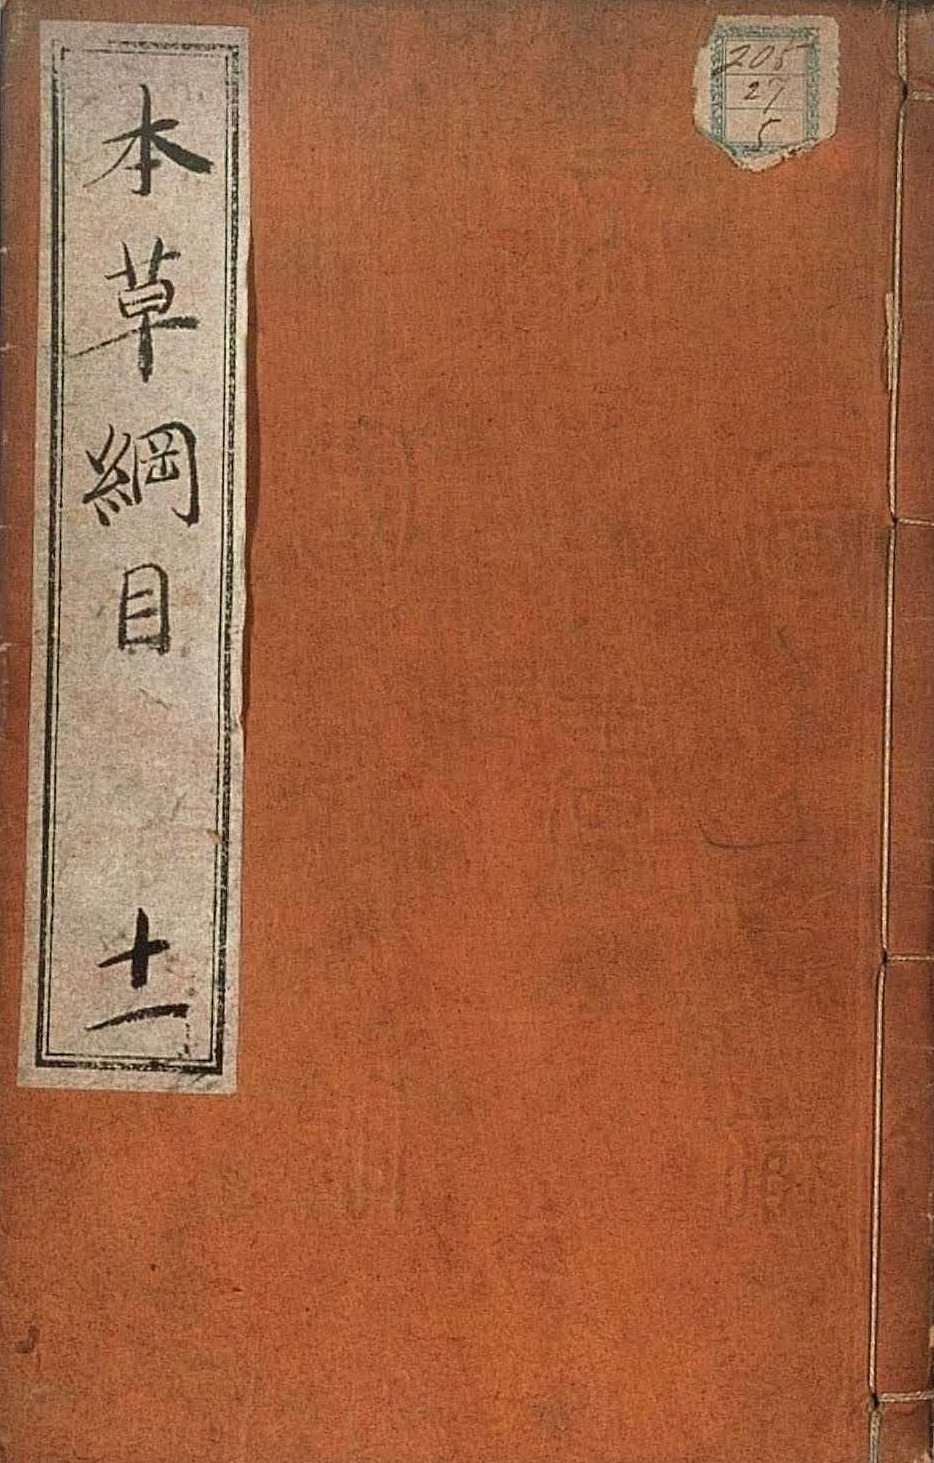 本草綱目 十一
205
27
5